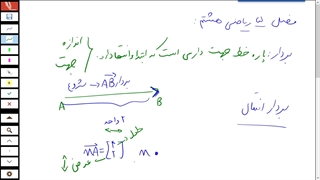 فصل ۵ ریاضی هشتم:
بردار: پاره خط جهت داری است که ابتدا و انتها دارد. اندازه جهت
بردار AB → شروع
A B
بردار انتقال
۲ واحد
طولی
MA = [ ۲ ] M
عرضی